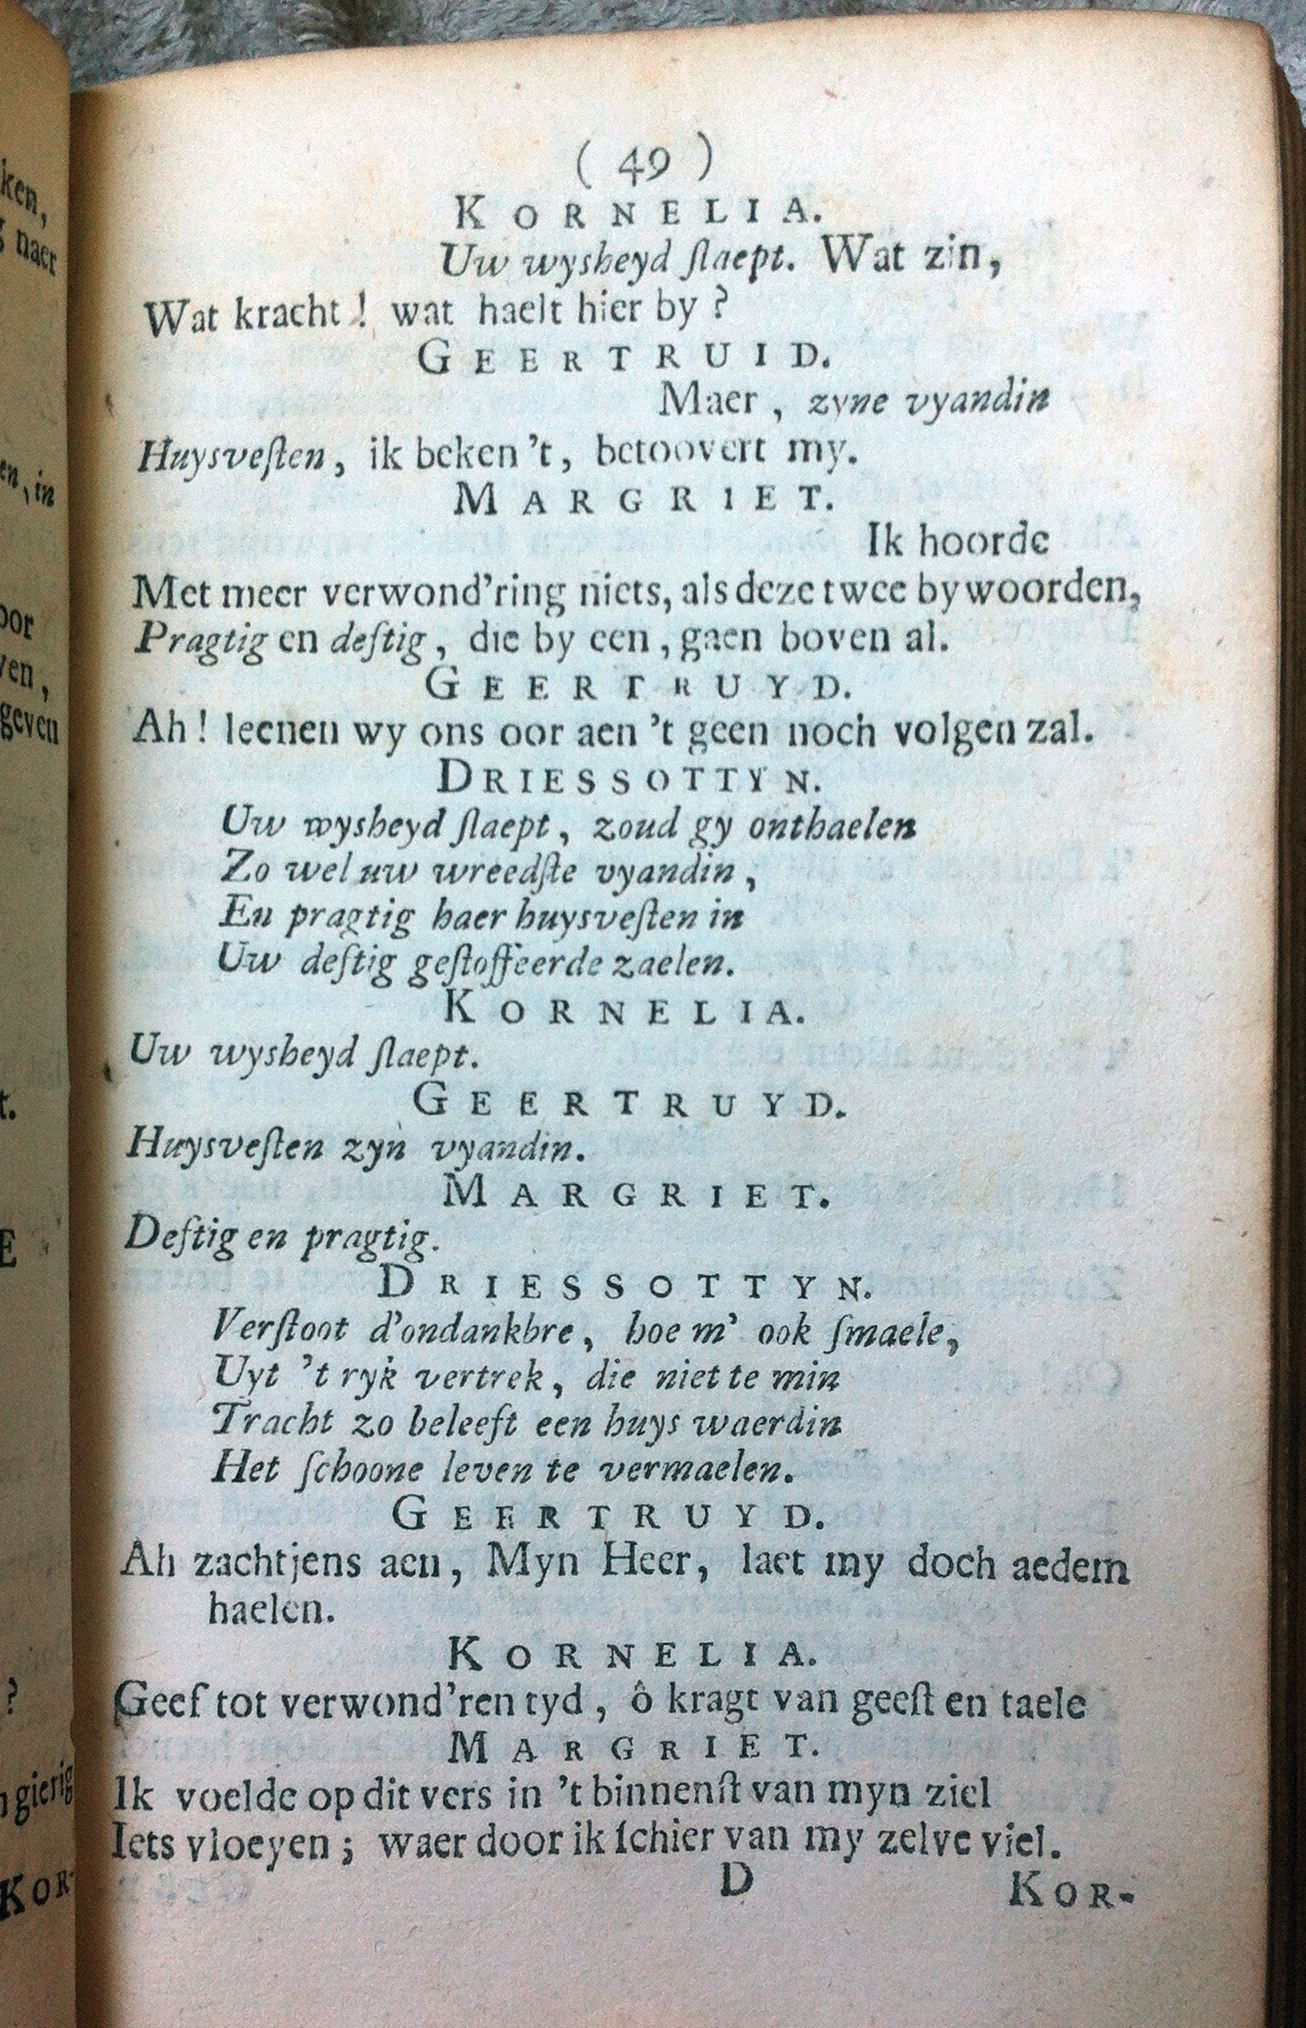 ( 49 )
KORNELIA.
Uw wysheyd ſlaept. Wat zin,
Wat kracht ! wat haelt hier by ?
GEERTRUID.
Maer , zyne vyandin
Huysveſten, ik beken 't, betoovert my.
MARGRIET.
Ik hoorde
Met meer verwond'ring niets, als deze twee bywoorden,
Pragtig en deſtig, die by een, gaen boven al.
GEERTRUYD.
Ah! leenen wy ons oor aen 't geen noch volgen zal.
DRIESSOTTYN.
Uw wysheyd ſlaept, zoud gy onthaelen
Zo wel uw wreedſte vyandin,
En pragtig haer huysveſten in
Uw deſtig geſtoffeerde zaelen.
KORNELIA.
Uw wysheyd ſlaept.
GEERTRUYD.
Huysveſten zyn vyandin.
MARGRIET.
Deſtig en pragtig.
DRIESSOTTYN.
Verſtoot d'ondankbre, hoe m' ook ſmaele,
Uyt 't ryk vertrek, die niet te min
Tracht zo beleeft een huys waerdin
Het ſchoone leven te vermaelen.
GEERTRUYD.
Ah zachtjens aen, Myn Heer, laet my doch aedem
haelen.
KORNELIA.
Geef tot verwond'ren tyd, ô kragt van geeſt en taele
MARGRIET.
Ik voelde op dit vers in 't binnenſt van myn ziel
Iets vloeyen; waer door ik ſchier van my zelve viel.
D KOR-
ken,
naer
en, in
oor
ven,
geven
t.
E
?
gierig
KOR-